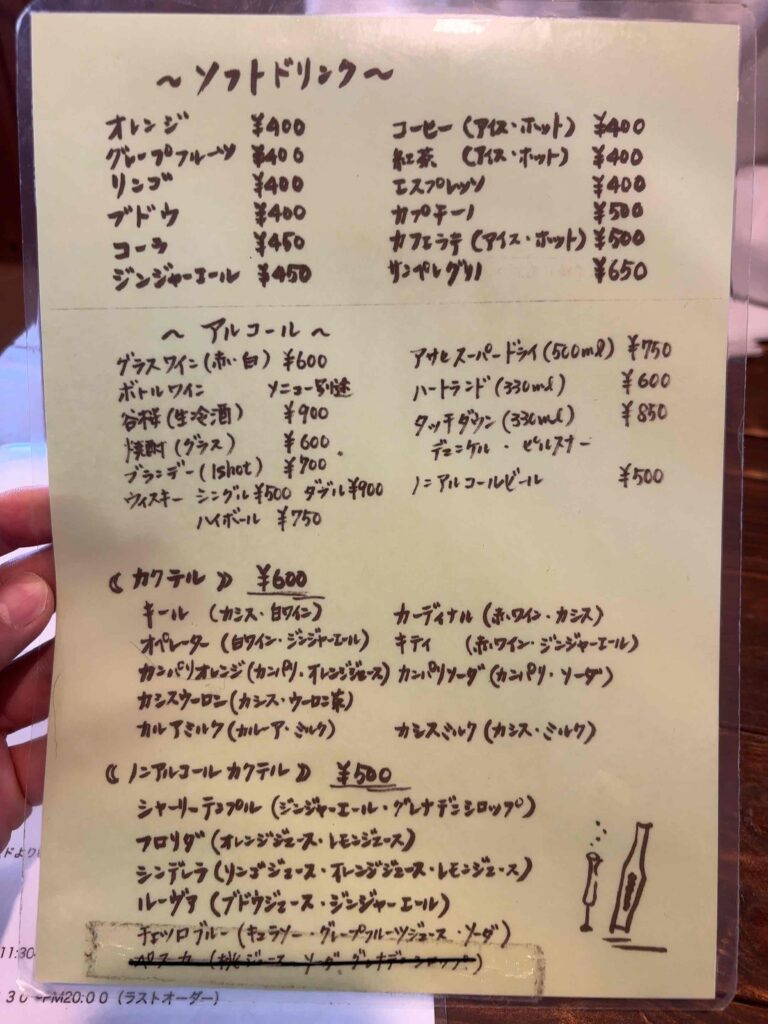 ～ソフトドリンク～
オレンジ ¥400
グレープフルーツ ¥400
リンゴ ¥400
ブドウ ¥400
コーラ ¥450
ジンジャーエール ¥450
コーヒー(アイス・ホット) ¥400
紅茶 (アイス・ホット) ¥400
エスプレッソ ¥400
カプチーノ ¥500
カフェラテ(アイス・ホット) ¥500
サンペレグリノ ¥650
～ アルコール ～
グラスワイン(赤・白) ¥600
ボトルワイン メニュー別途
谷桜(生冷酒) ¥900
焼酎(グラス) ¥600
ブランデー(1shot) ¥700
ウィスキー シングル¥500 ダブル¥900
ハイボール ¥750
アサヒスーパードライ(500ml) ¥750
ハートランド(330ml) ¥600
タッチダウン(330ml) ¥850
デュンケル・ピルスナー
ノンアルコールビール ¥500
《カクテル》 ¥600
キール (カシス・白ワイン)
カーディナル(赤ワイン・カシス)
オペレーター(白ワイン・ジンジャーエール)
キティ (赤ワイン・ジンジャーエール)
カンパリオレンジ(カンパリ・オレンジジュース)
カンパリソーダ(カンパリ・ソーダ)
カシスウーロン(カシス・ウーロン茶)
カルアミルク(カルーア・ミルク)
カシスミルク(カシス・ミルク)
《ノンアルコールカクテル》 ¥500
シャーリーテンプル(ジンジャーエール・グレナデンシロップ)
フロリダ(オレンジジュース・レモンジュース)
シンデレラ(リンゴジュース・オレンジジュース・レモンジュース)
ルーヴァ(ブドウジュース・ジンジャーエール)
チェッロブルー(キュラソー・グレープフルーツジュース・ソーダ)
(桃ジュース ソーダ グレナデンシロップ)
ドより
11:30
30 PM20:00(ラストオーダー)